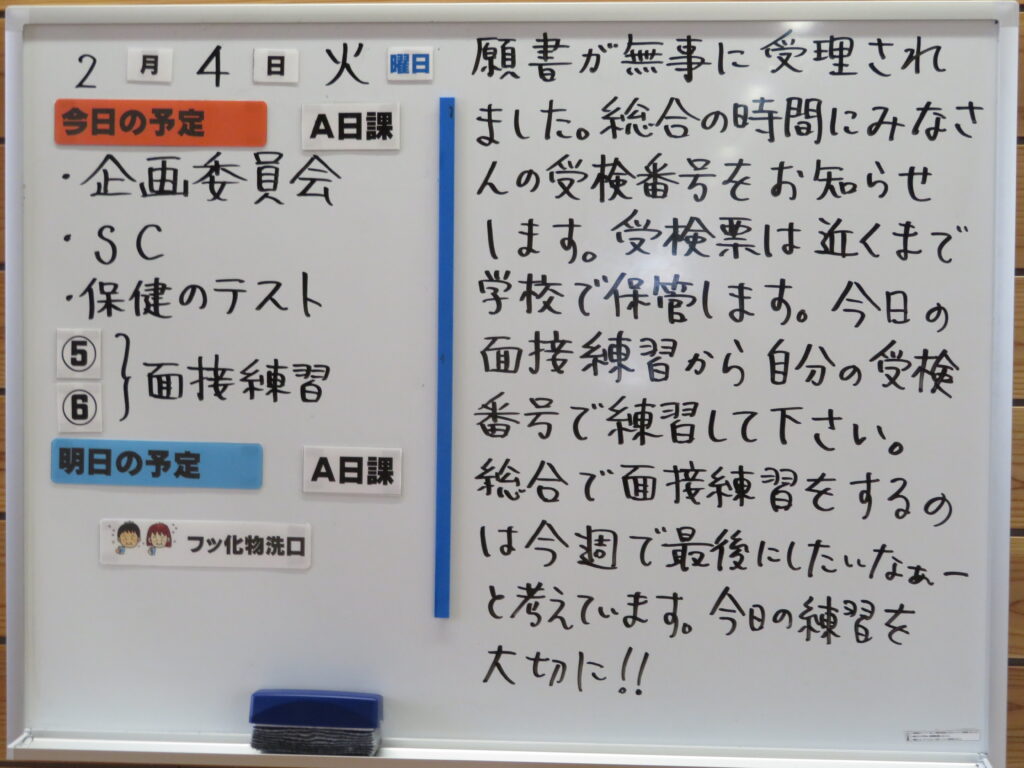 2月4日火曜日
今日の予定 A日課
・企画委員会
・SC
・保健のテスト
⑤
⑥
面接練習
明日の予定 A日課
フッ化物洗口
願書が無事に受理され
ました。総合の時間にみなさ
んの受検番号をお知らせ
します。受検票は近くまで
学校で保管します。今日の
面接練習から自分の受検
番号で練習して下さい。
総合で面接練習をするの
は今週で最後にしたいなぁー
と考えています。今日の練習を
大切に!!